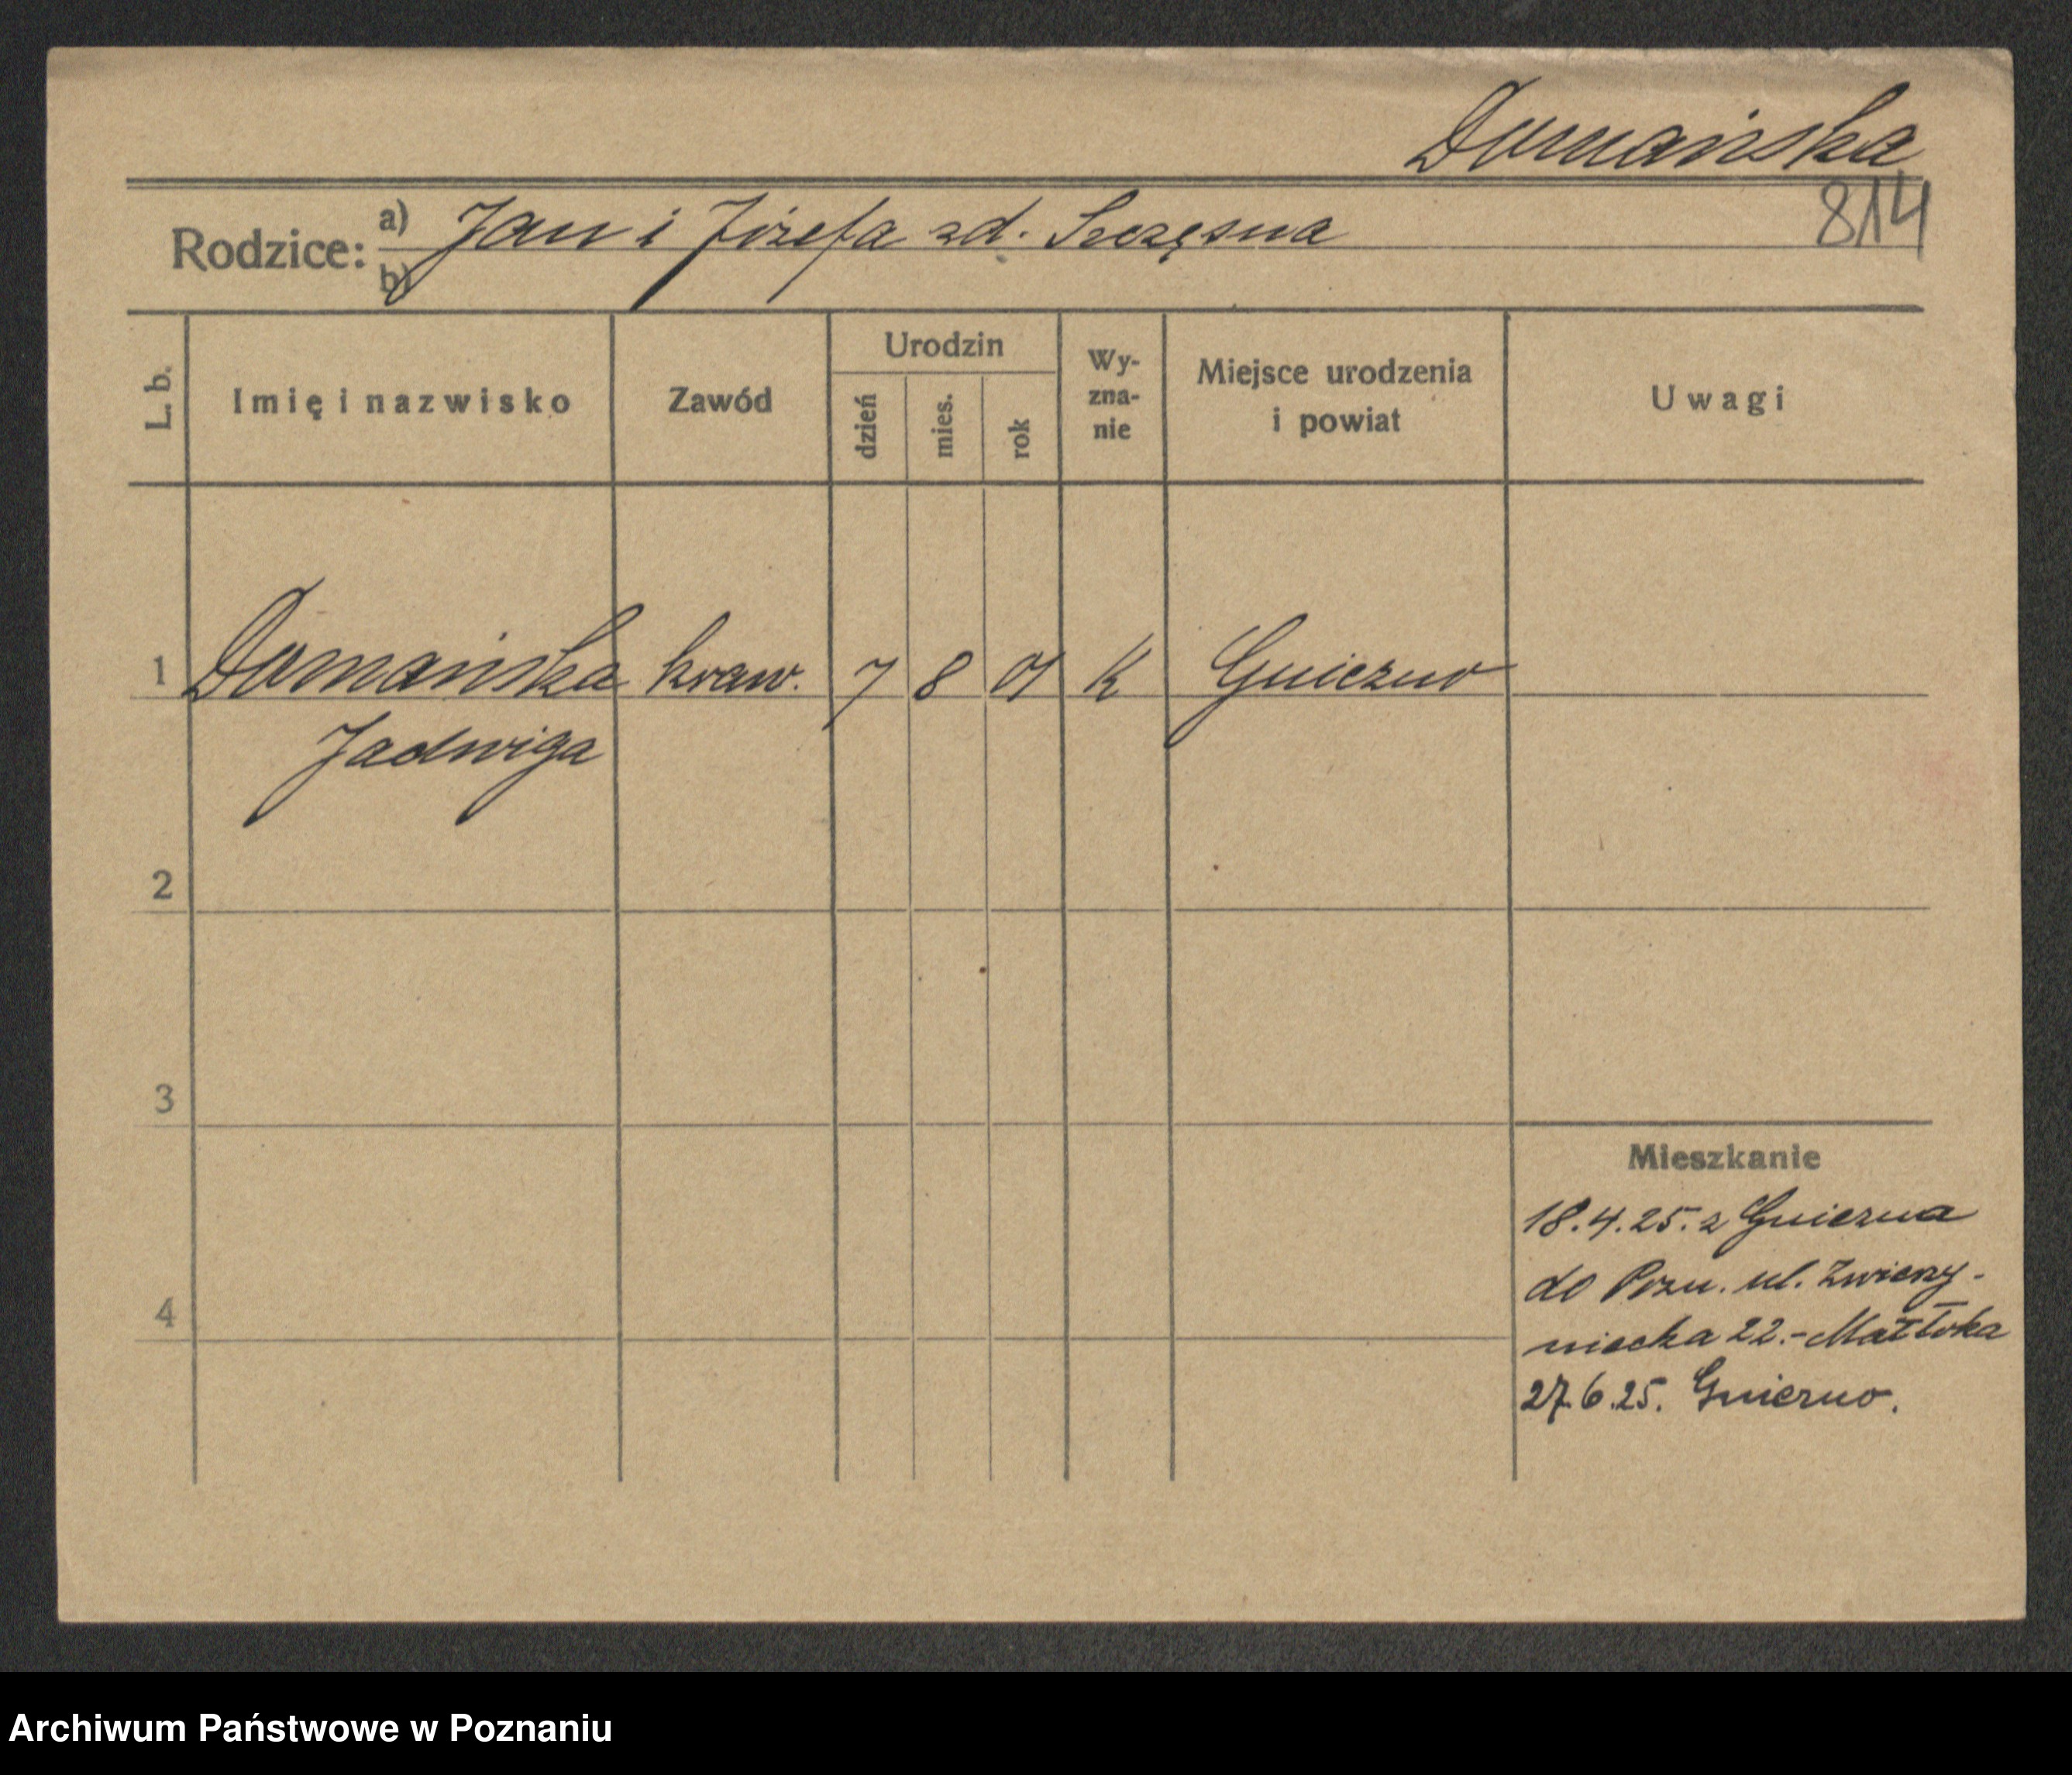 Domańska
814
Rodzice: a) Jan i Józefa zd. Szczęsna
b)
L. b.
Imię i nazwisko
Zawód
Urodzin
dzień
mies.
rok
Wy-
zna-
nie
Miejsce urodzenia
i powiat
Uwagi
1 Domańska kraw. 7 8 01 K Gniezno
Jadwiga
2
3
4
Mieszkanie
18.4.25. z Gniezna
do Pozn. ul. Zwierzy-
niecka 22.-
27.6.25. Gniezno.
Archiwum Państwowe w Poznaniu